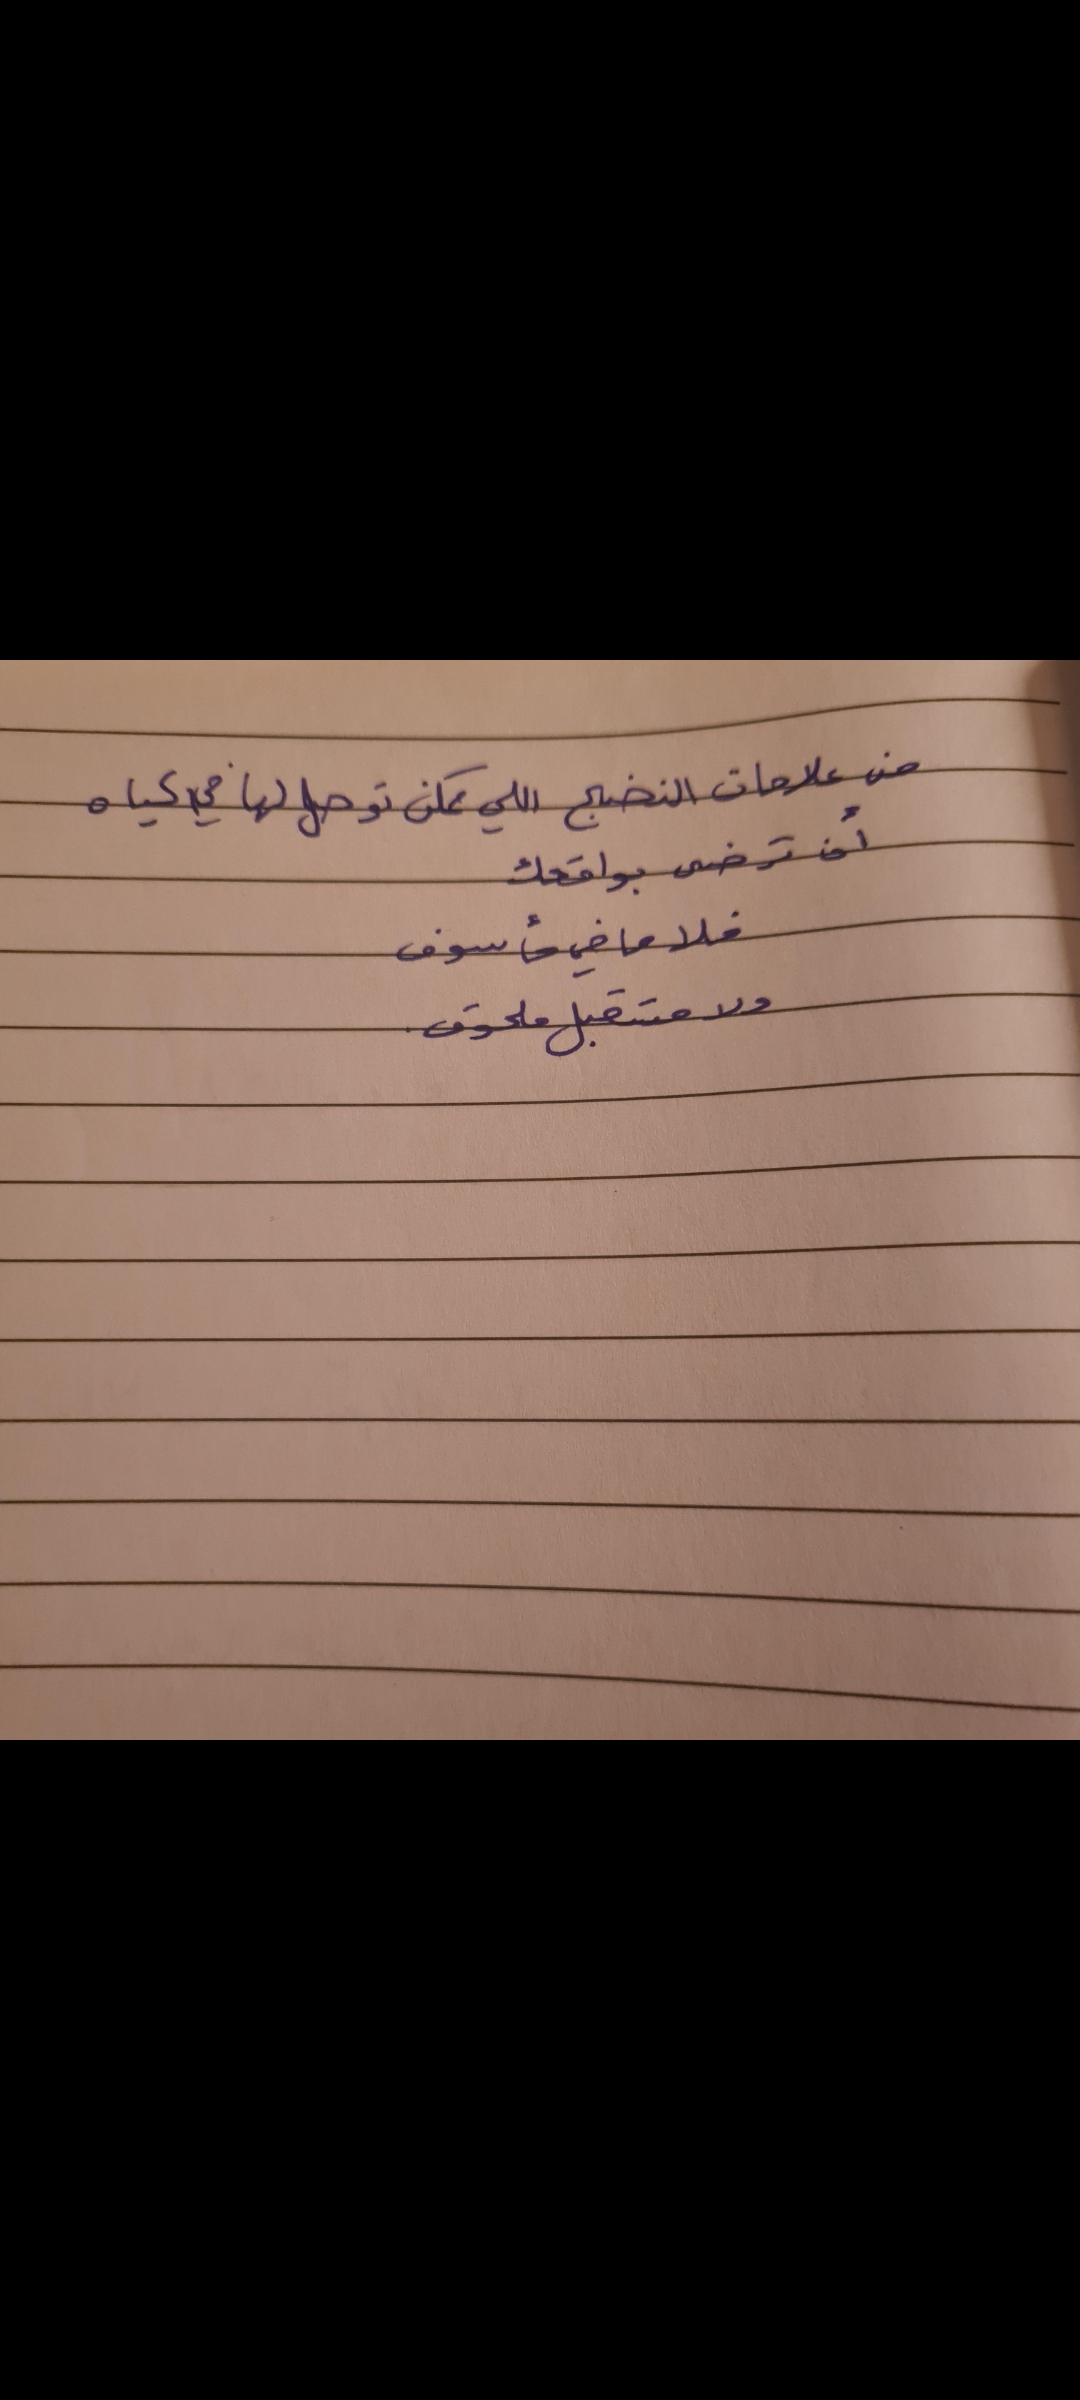 من علامات النضج اللي ممكن توصل لها في حياه
أن ترضى بواقعك
فلا ماضي مأسوف
ولا مستقبل ملحوق.